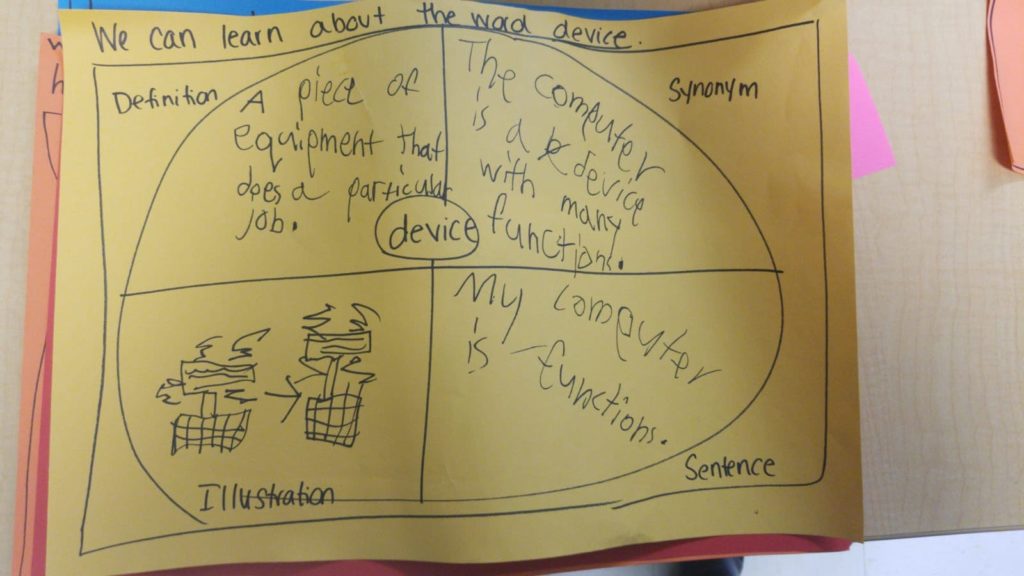 We can learn about the word device.
Definition
A piece of
equipment that
does a particular
job.
Synonym
The computer
is a device
with many
functions.
device
Illustration
My computer
is functions.
Sentence